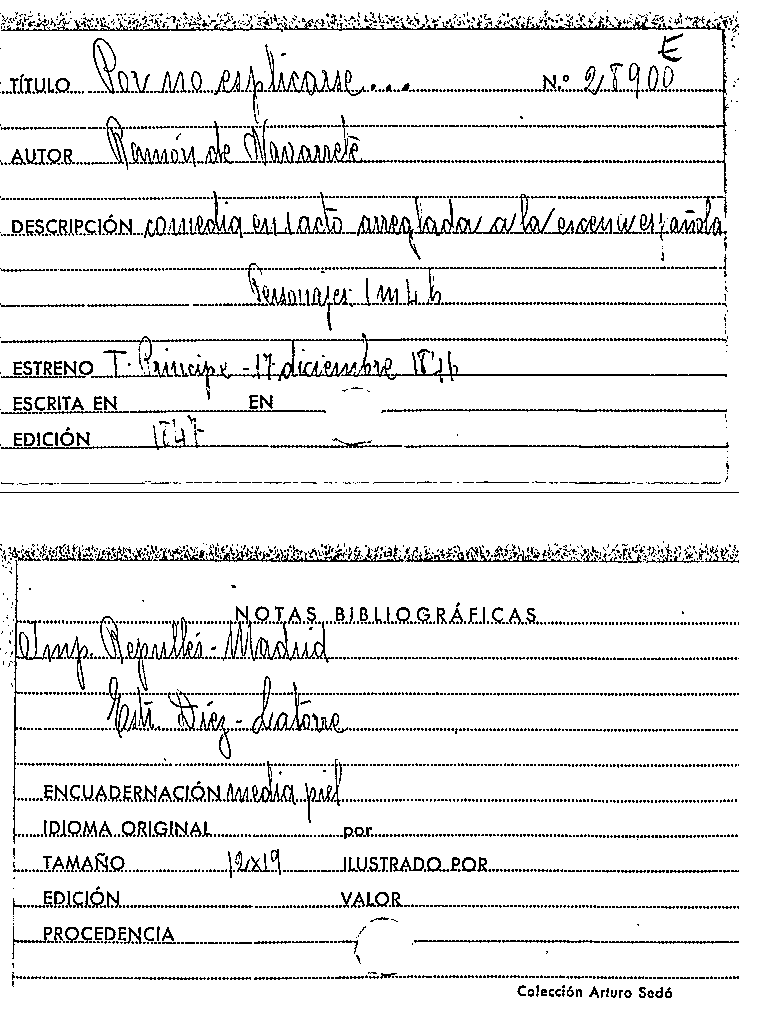 E
TÍTULO Por no esplicarse.... N.º 28900
AUTOR Ramón de Navarrete
DESCRIPCIÓN comedia en 1 acto arreglada a la escena española
Personajes 1 m 4 h
ESTRENO T. Principe - 17 diciembre 1846
ESCRITA EN EN
EDICIÓN 1847
NOTAS BIBLIOGRÁFICAS
Imp. Repullés - Madrid
Estr. Díez - Latorre
ENCUADERNACIÓN media piel
IDIOMA ORIGINAL por
TAMAÑO 12x19 ILUSTRADO POR
EDICIÓN VALOR
PROCEDENCIA
Colección Arturo Sedó